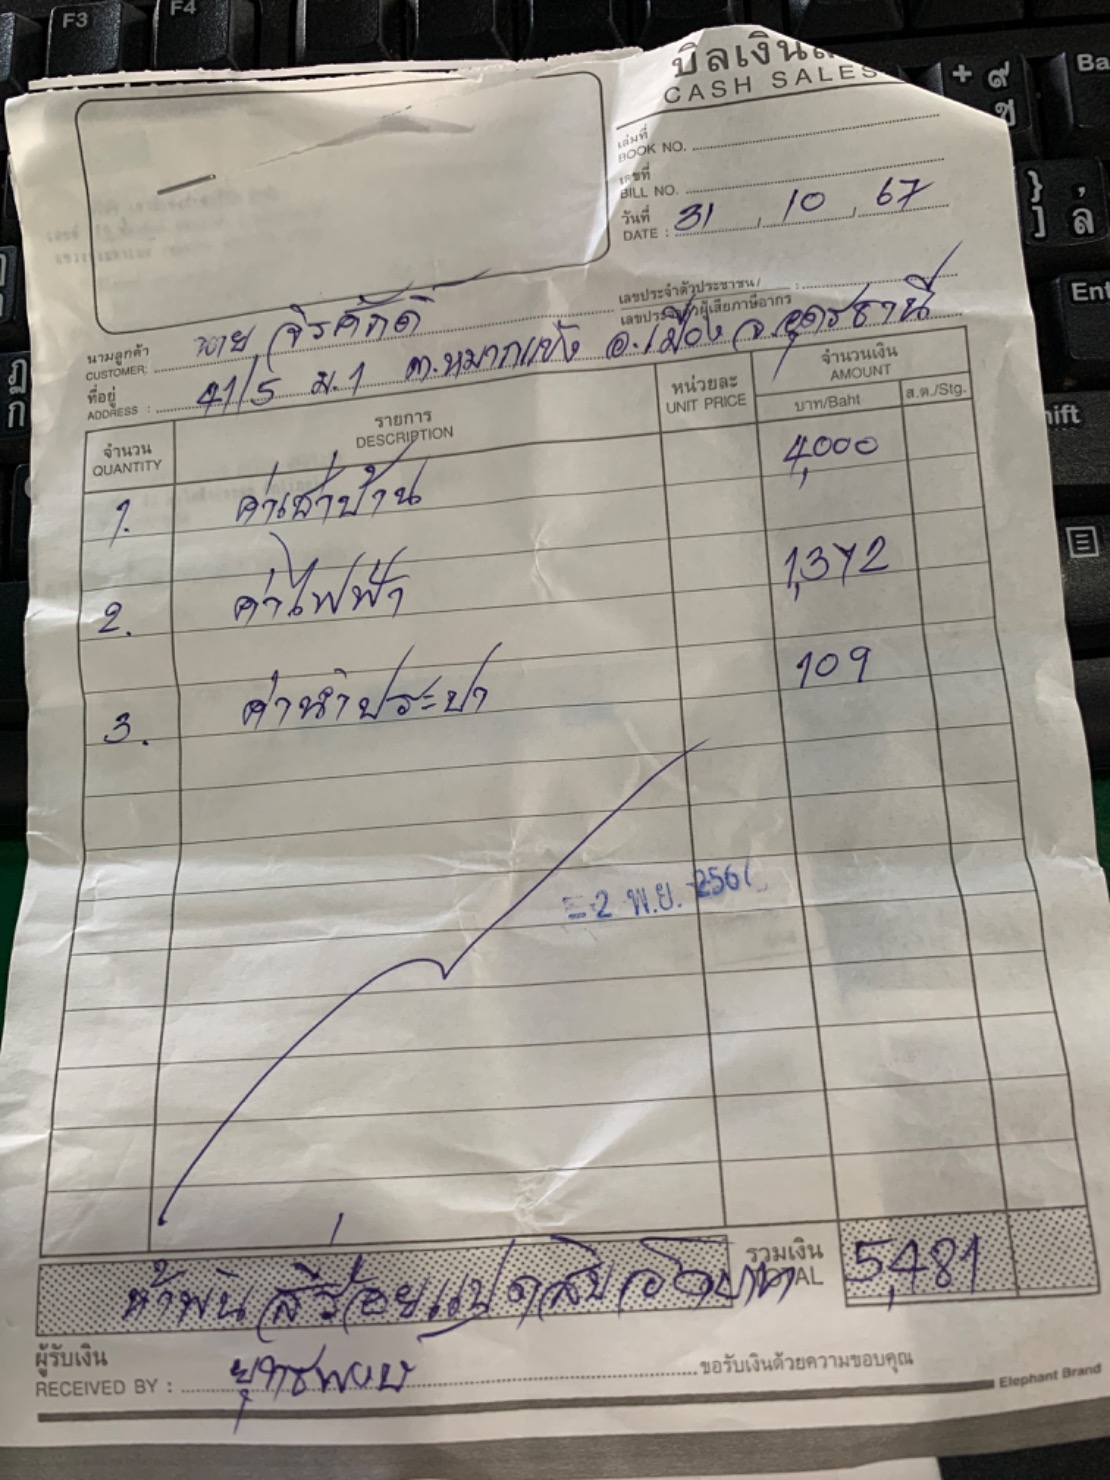 บิลเงินส
CASH SALES
เล่มที่
BOOK NO.
เลขที่
BILL NO.
วันที่
DATE : 31 / 10 / 67
เลขประจำตัวประชาชน /
เลขประจำตัวผู้เสียภาษีอากร
นามลูกค้า
CUSTOMER: นาย จิรศักดิ์
ที่อยู่
ADDRESS : 41/5 ม.1 ต.หมากแข้ง อ.เมือง จ.อุดรธานี
จำนวน
QUANTITY
รายการ
DESCRIPTION
หน่วยละ
UNIT PRICE
จำนวนเงิน
AMOUNT
บาท/Baht ส.ต./Stg.
1. ค่าเช่าบ้าน 4,000
2. ค่าไฟฟ้า 1,372
3. ค่าน้ำประปา 109
-2 พ.ย. 256
ห้าพันสี่ร้อยแปดสิบเอ็ดบาท
รวมเงิน
TOTAL 5,481
ผู้รับเงิน
RECEIVED BY : ขอรับเงินด้วยความขอบคุณ
Elephant Brand
F3
F4
+ ๙
ช
Ba
}
]
,
ล
Ent
hift
ฎ
ก